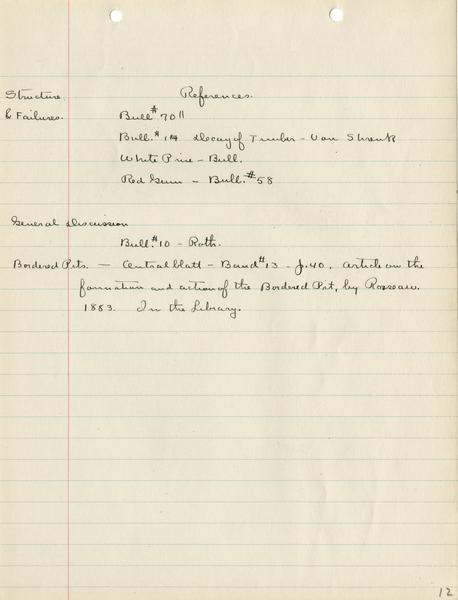 Structure References.
& Failures. Bull # 70 11
Bull. # 14 Decay of Timber - Von Shrenk
White Pine - Bull.
Red Gum - Bull. # 58
General Discussion
Bull. # 10 - Roth.
Bordered Pits. - Centralblatt - Band # 13 - J. 40. Article on the
formation and action of the Bordered Pit, by
1883. In the Library.
12